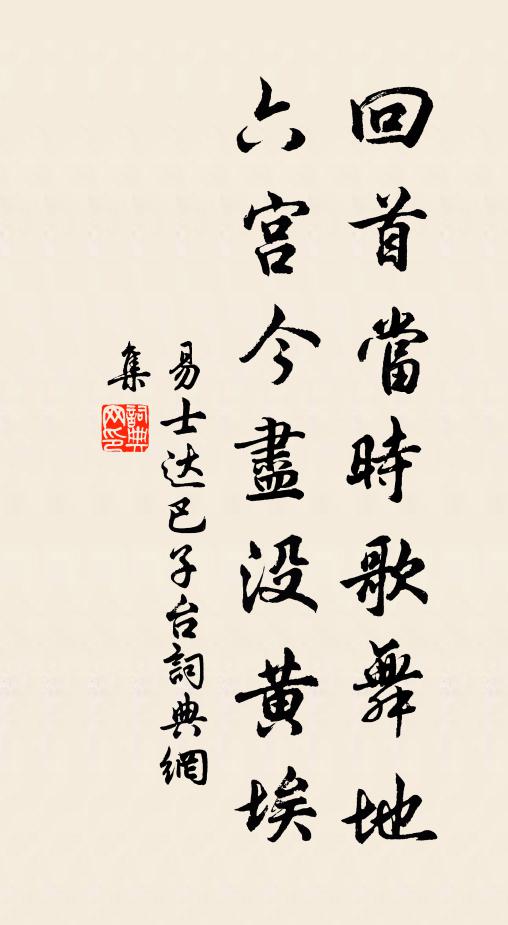 回首當時歌舞地
六宮今盡没黃埃
易士达巴子台詞典網
集
詞典
网印